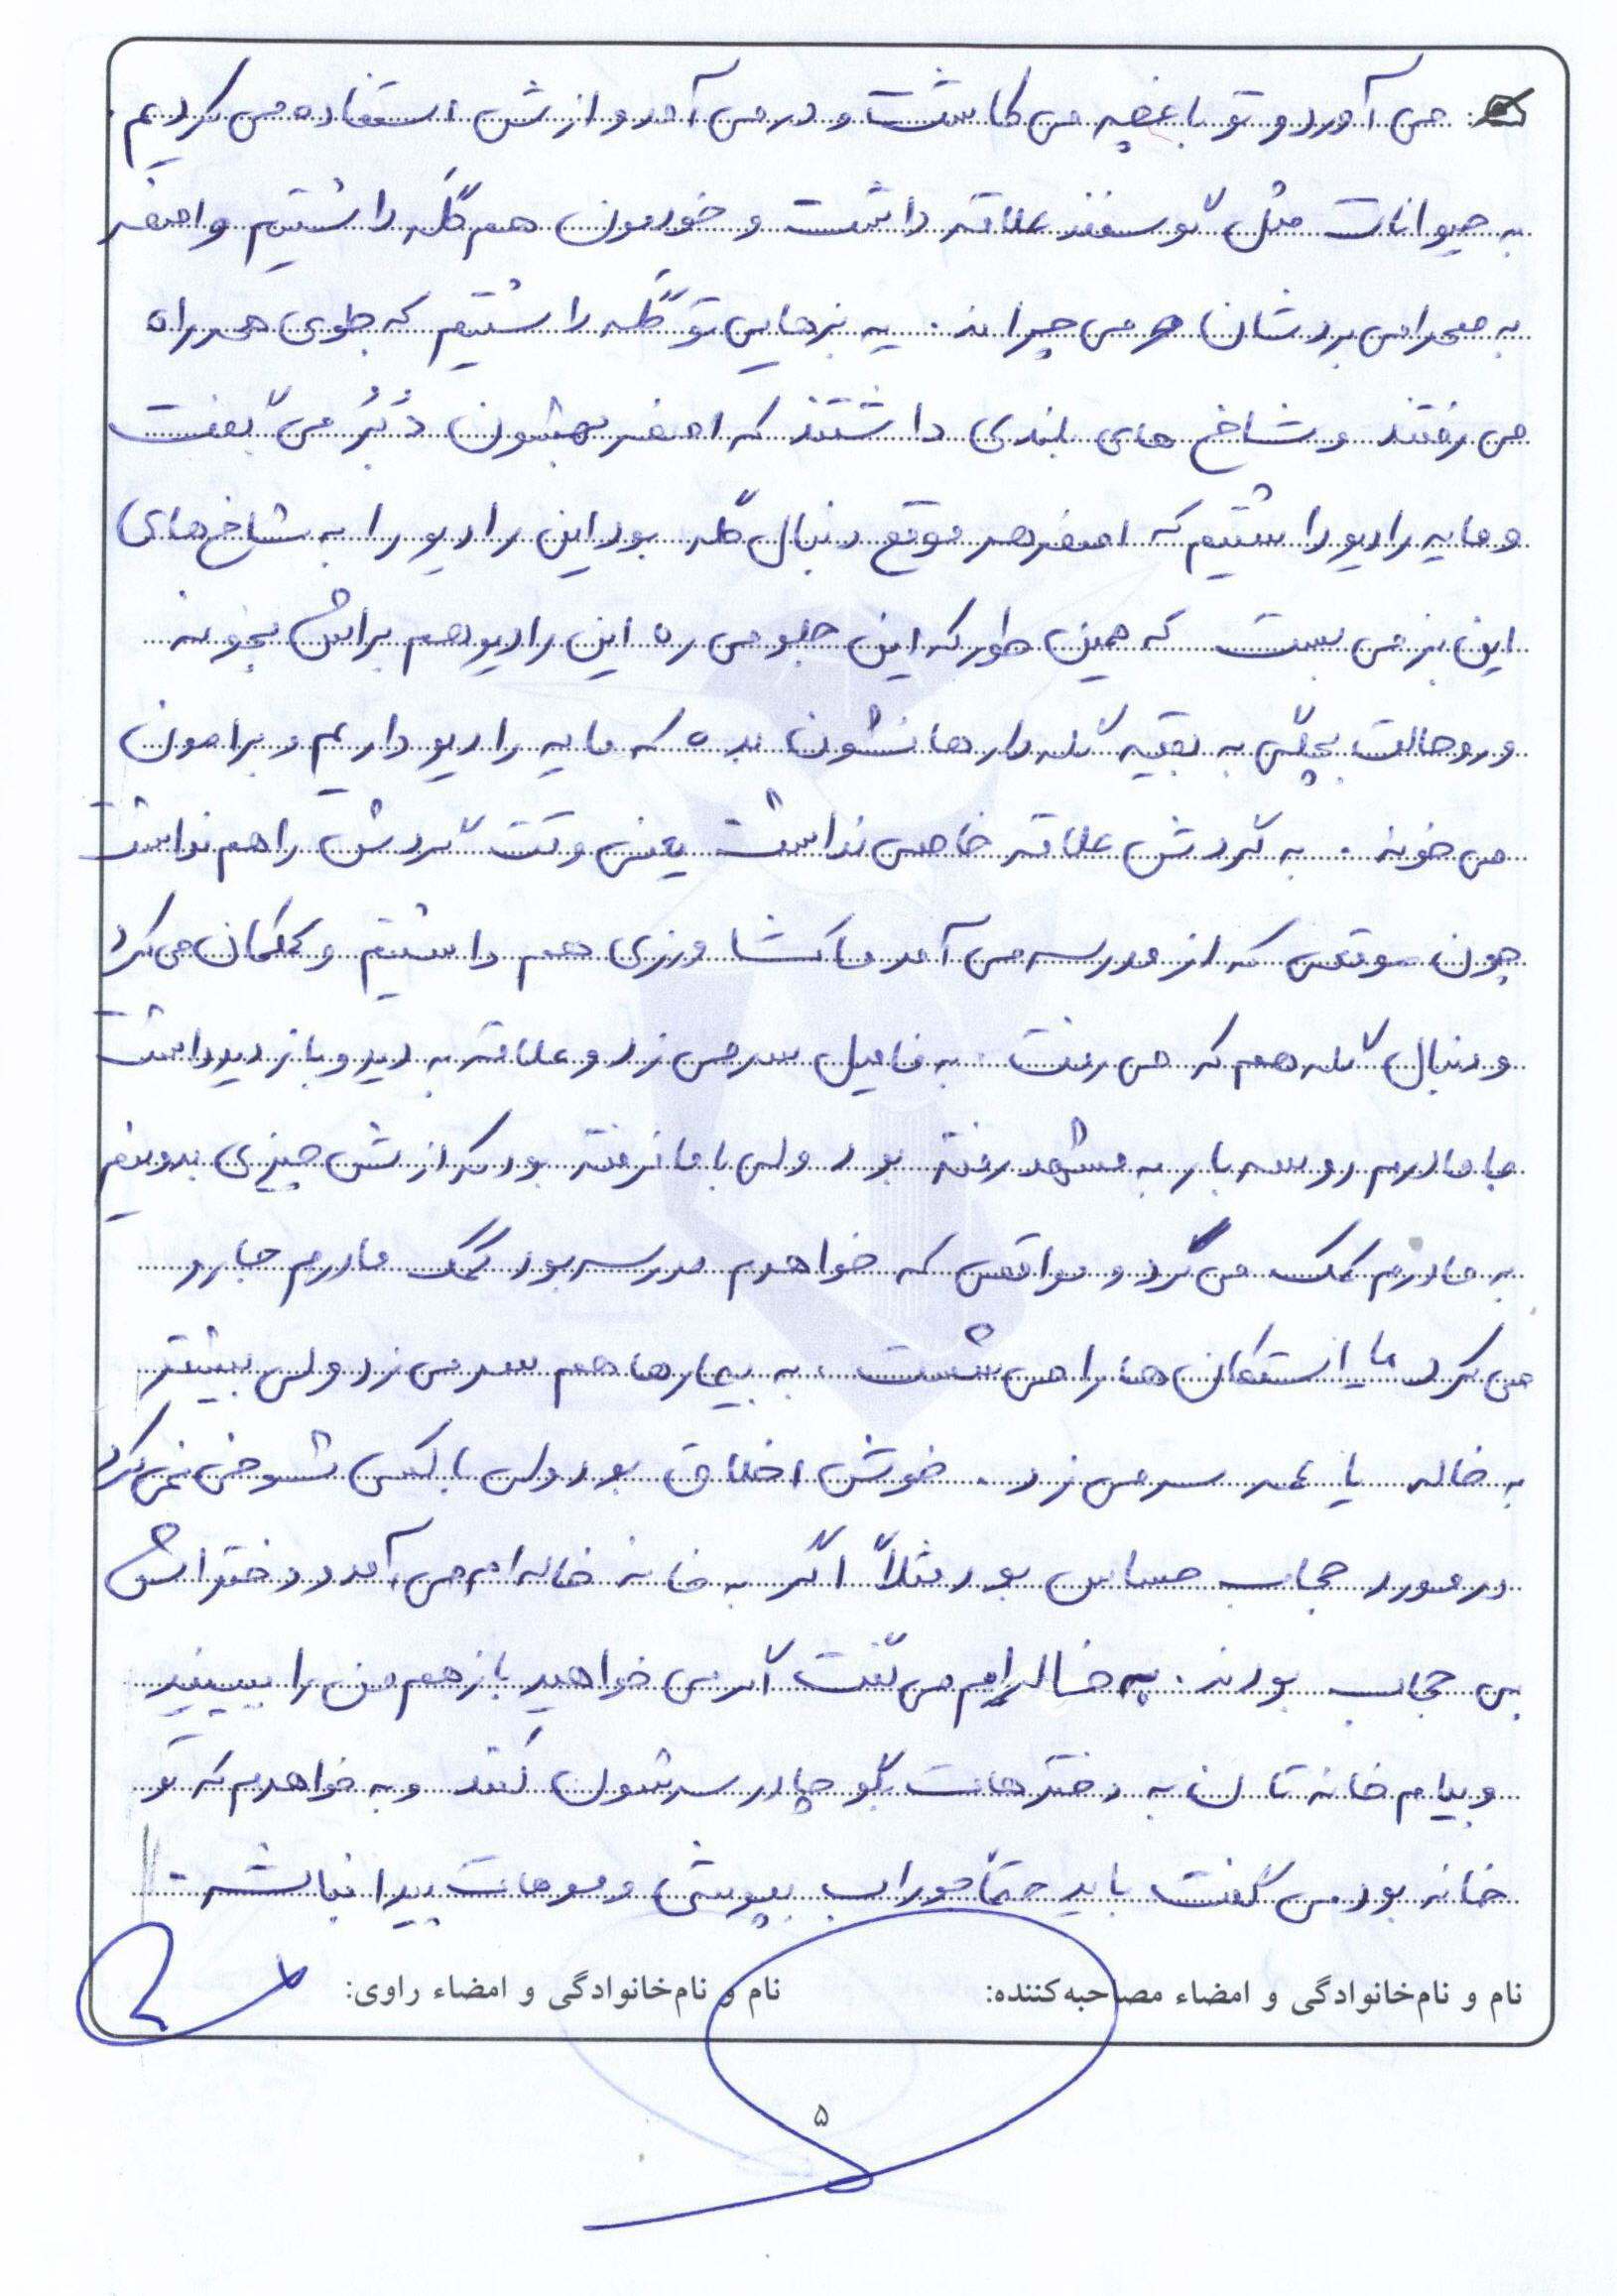 می آورد و تو باغچه می کاشت و در می آمد و ازش استفاده می کردیم.
به حیوانات مثل گوسفند علاقه داشت و خودمون هم گله داشتیم و اصغر
به صحرا می بردشان و می چراند. یه بزهایی تو گله داشتیم که جلوی همه راه
می رفتند و شاخ های بلندی داشتند که اصغر بهشون دُبُر می گفت
و ما یه رادیو داشتیم که اصغر هر موقع دنبال گله بود این رادیو را به شاخ های
این بز می بست که همین طور که این جلو می ره این رادیو هم براش بخونه
و رو حالت بچگی به بقیه گله دارها نشون بده که ما یه رادیو داریم و برامون
می خونه. به گردش علاقه خاصی نداشت یعنی وقت گردش را هم نداشت
چون موقعی که از مدرسه می آمد ما کشاورزی هم داشتیم و کمکمان می کرد
و دنبال گله هم که می رفت. به فامیل سر می زد و علاقه به دید و بازدید داشت
با مادرم دو سه بار به مشهد رفته بود ولی با ما نرفته بود که ازش چیزی بدونیم
به مادرم کمک می کرد و مواقعی که خواهرم مدرسه بود کمک مادرم جارو
می کرد یا استکان ها را می شست. به بیمارها هم سر می زد ولی بیشتر
به خاله یا عمه سر می زد. خوش اخلاق بود ولی با کسی شوخی نمی کرد
در مورد حجاب حساس بود مثلاً اگر به خانه خاله ام می آمد و دختراش
بی حجاب بودند. به خاله ام می گفت اگر می خواهید بازهم من را ببینید
و بیام خانه تان به دخترهات بگو چادر سرشون کنند و به خواهرم که تو
خانه بود می گفت باید حتماً جوراب بپوشی و موهات پیدا نباشد.
نام و نام‌خانوادگی و امضاء مصاحبه‌کننده: نام و نام‌خانوادگی و امضاء راوی:
۵